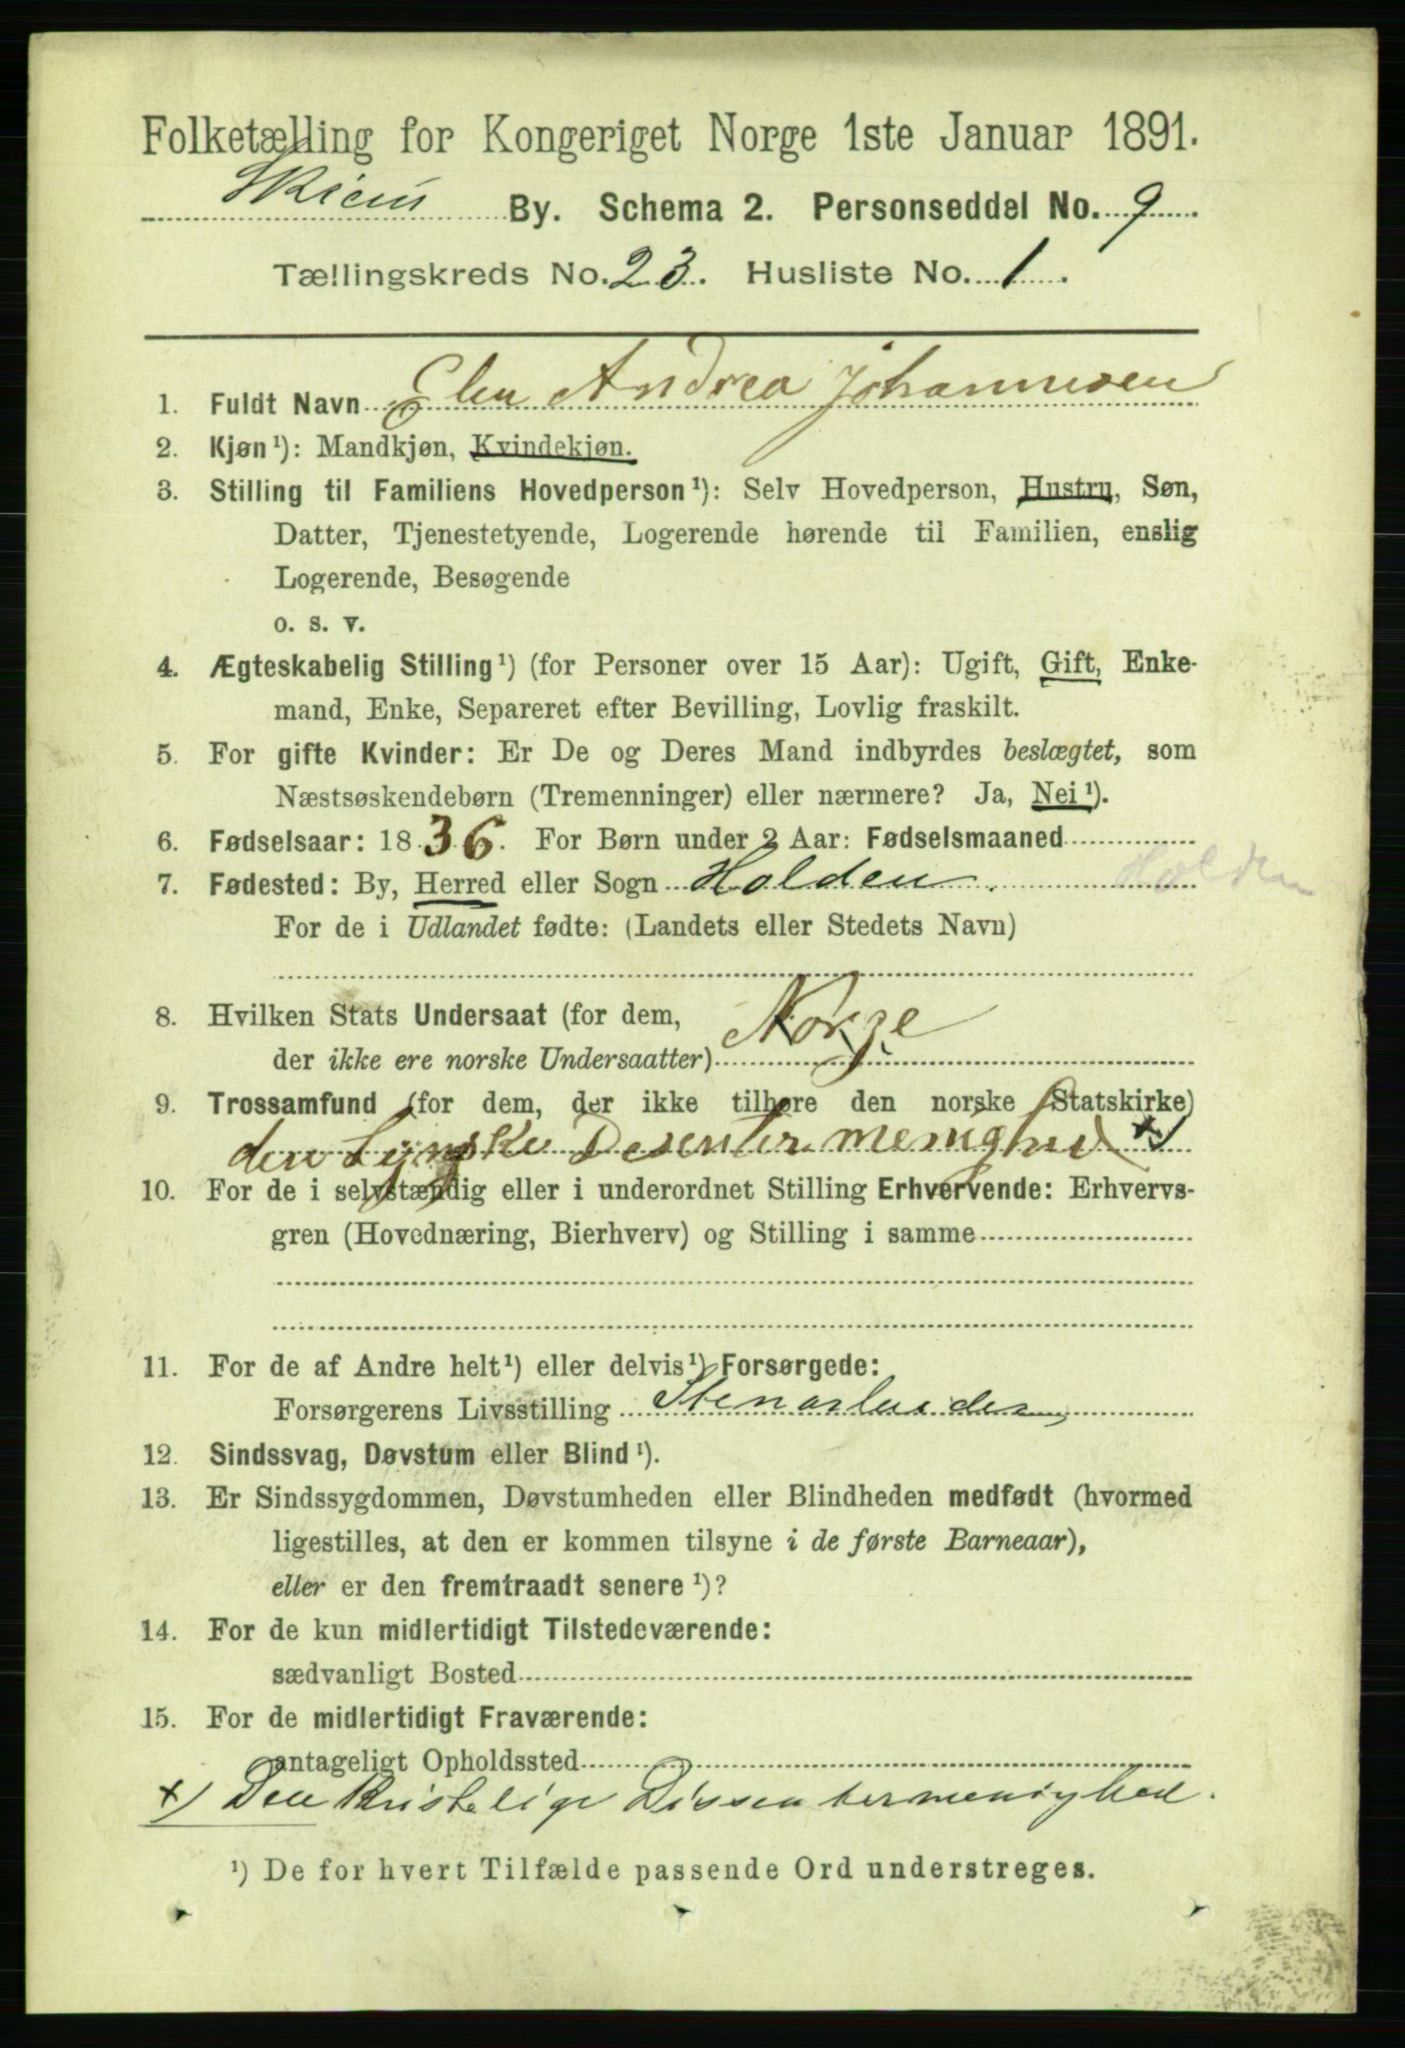 Folketælling for Kongeriget Norge 1ste Januar 1891.
Skien By. Schema 2. Personseddel No. 9
Tællingskreds No. 23. Husliste No. 1.
1. Fuldt Navn Elen Andrea Johannesen
2. Kjøn¹): Mandkjøn, Kvindekjøn.
3. Stilling til Familiens Hovedperson¹): Selv Hovedperson, Hustru, Søn,
Datter, Tjenestetyende, Logerende hørende til Familien, enslig
Logerende, Besøgende
o. s. v.
4. Ægteskabelig Stilling¹) (for Personer over 15 Aar): Ugift, Gift, Enke-
mand, Enke, Separeret efter Bevilling, Lovlig fraskilt.
5. For gifte Kvinder: Er De og Deres Mand indbyrdes beslægtet, som
Næstsøskendebørn (Tremenninger) eller nærmere? Ja, Nei¹).
6. Fødselsaar: 1836. For Børn under 2 Aar: Fødselsmaaned
7. Fødested: By, Herred eller Sogn Holden. Holden
For de i Udlandet fødte: (Landets eller Stedets Navn)
8. Hvilken Stats Undersaat (for dem,
der ikke ere norske Undersaatter) Norge
9. Trossamfund (for dem, der ikke tilhøre den norske Statskirke)
den Desenter menighed x)
10. For de i selvstændig eller i underordnet Stilling Erhvervende: Erhvervs-
gren (Hovednæring, Bierhverv) og Stilling i samme
11. For de af Andre helt¹) eller delvis¹) Forsørgede:
Forsørgerens Livsstilling Stenarbeider
12. Sindssvag, Døvstum eller Blind¹).
13. Er Sindssygdommen, Døvstumheden eller Blindheden medfødt (hvormed
ligestilles, at den er kommen tilsyne i de første Barneaar),
eller er den fremtraadt senere¹)?
14. For de kun midlertidigt Tilstedeværende:
sædvanligt Bosted
15. For de midlertidigt Fraværende:
antageligt Opholdssted
x) Den kristelige Dissentermenighed.
¹) De for hvert Tilfælde passende Ord understreges.